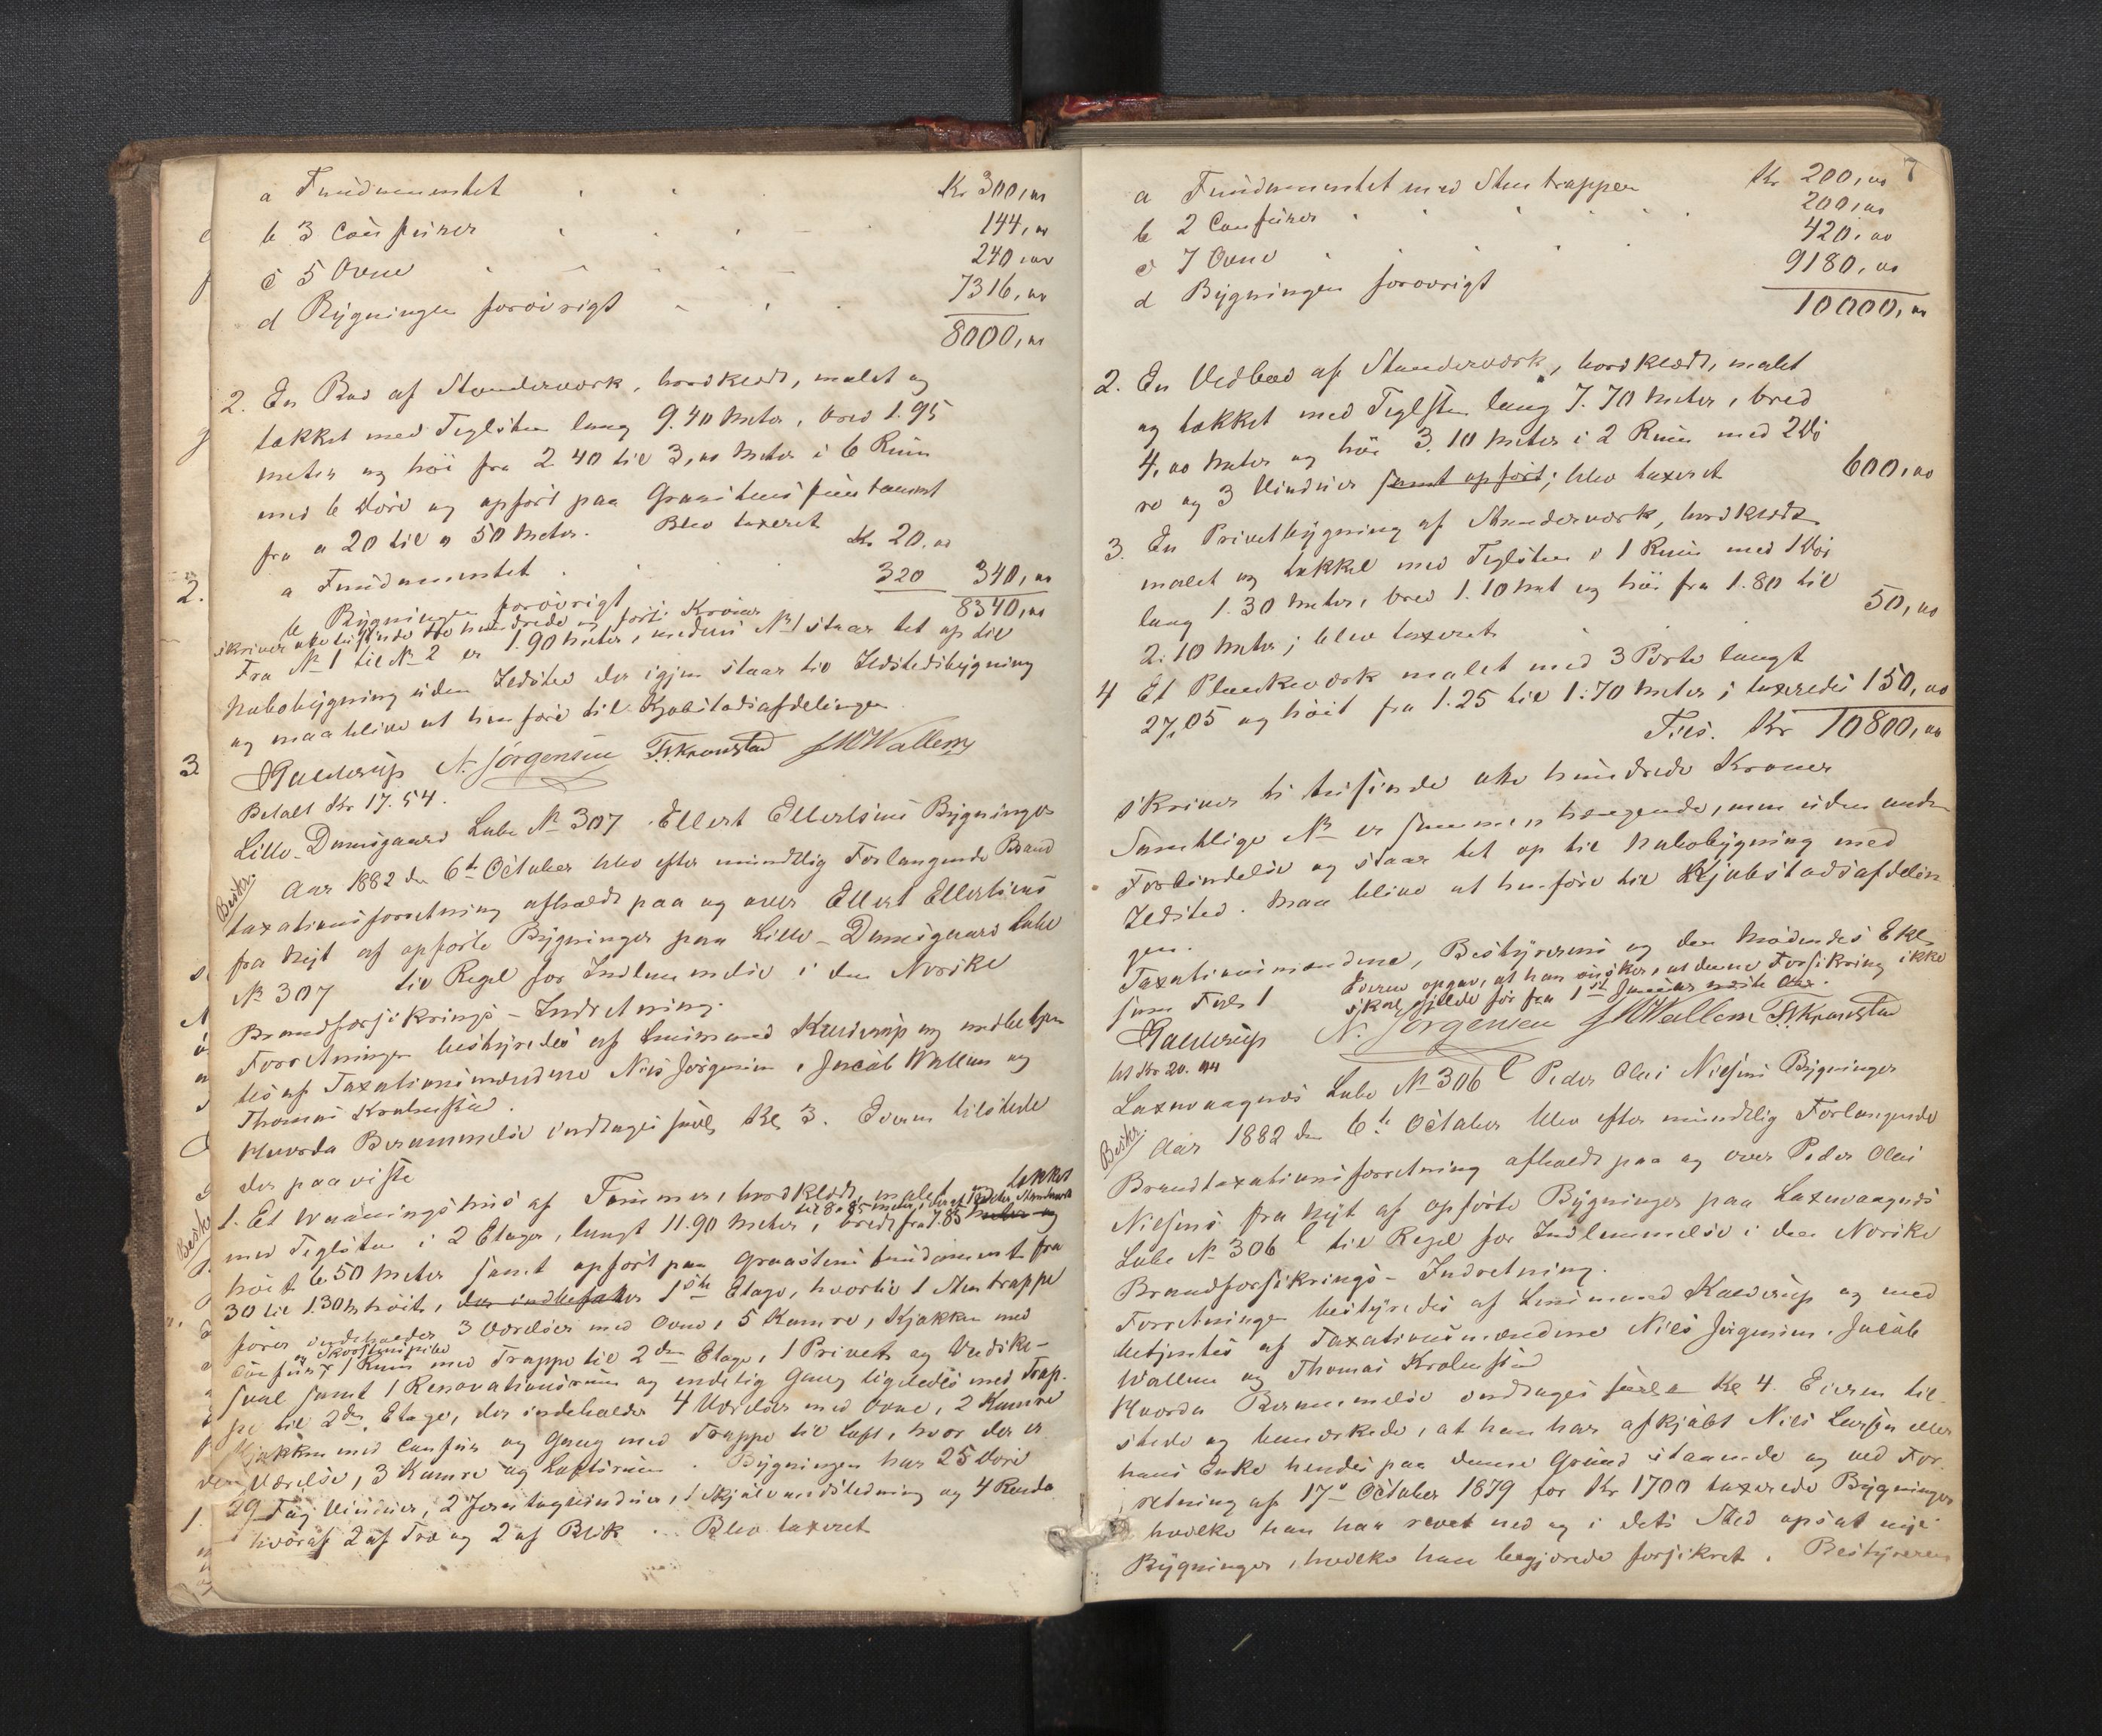 a Fundamentet Kr 300,00
b 3 Comfurer 144,00
c 5 Ovne 240,00
d Bygningen forøvrigt 7316,00
8000,00
2. En Bod af Standerværk, bordklædt, malet og
tækket med Teglsten lang 9.40 Meter, bred 1.95
Meter og høi fra 2 40 til 3,00 Meter i 6 Rum
med 6 Døre og opført paa Graastens fundament
fra 0 20 til 0 50 Meter. Blev taxeret
a Fundamentet Kr 20.00
b Bygningen forøvrigt 320 340,00
8340,00
skriver otte tusinde tre hundrede og forti Kroner
Fra No 1 til No 2 er 1.90 Meter, medens No 1 staar tet op til
Nabobygning uden Ildsted der igjen staar til Ildstedsbygning
og maa blive at henføre til Kjøbstadsafdelingen
Kaldrup N. Jørgensen T. Kronstad J W Wallem
Betalt Kr 17.54.
Lille-Damsgaard Lube No 307 Ellert Ellertsens Bygninger
Beskr.
Aar 1882 den 6te October blev efter mundtlig Forlangende Brand
taxationsforretning afholdt paa og over Ellert Ellertsens
fra Nyt af opførte Bygninger paa Lille-Damsgaard Lube
No 307 til Regel for Indlemmelse i den Norske
Brandforsikrings-Indretning.
Forretningen bestyredes af Lensmand Kaldrup og indbetjen
tes af Taxationsmændene Nils Jørgensen, Jacob Wallem og
Thomas Krohnstad.
Hvorda Berammelse indtages Kl 3. Eieren tilstede
der paaviste
1. Et Vaaningshus af Tømmer, bordklædt, malet og tækket
med Teglsten i 2 Etager, langt 11.90 Meter, bredt fra 7.85 Meter og
til 8.85 Meter,
høit 6.50 Meter samt opført paa Graastens fundament fra
30 til 1.30 m høit, der indbefatter 1ste Etage, hvortil 1 Stentrappe
fører indeholder 3 Værelser med Ovne, 5 Kamre, Kjøkken med
Comfur, 1 Rum med Trappe til 2den Etage, 1 Privet og Vedski-
og Skorstenspibe
sval samt 1 Renovationsrum og endelig Gang ligeledes med Trap-
pe til 2den Etage, der indeholder 4 Værelser med Ovne, 2 Kamre
Kjøkken med Comfur og Gang med Trappe til Loft, hvor der er
Værelse, 3 Kamre og Loftsrum. Bygningen har 25 Døre
29 Fag Vinduer, 2 Jerntagvinduer, og 4 Render
hvoraf 2 af Træ og 2 af Blik. Blev taxeret
7
a Fundamentet med Stentrappen Kr 200,00
b 2 Comfurer 200,00
c 7 Ovne 420,00
d Bygningen forøvrigt 9180,00
10000,00
2. En Vedbod af Standerværk, bordklædt, malet
og tækket med Teglsten lang 7.70 Meter, bred
4,00 Meter og høi 3.10 Meter i 2 Rum med 2 Dø
re og 3 Vinduer samt opført; blev taxeret 600,00
3. En Privetbygning af Standerværk, bordklædt
malet og tækket med Teglsten i 1 Rum med 1 Dør
lang 1.30 Meter, bred 1.10 Met og høi fra 1.80 til
2.10 Meter; blev taxeret 50,00
4 Et Plankeværk malet med 3 Porte langt
27,05 og høit fra 1.25 til 1.70 Meter; taxeredes 150,00
Tils. Kr 10800,00
skriver ti tusinde otte hundrede Kroner
Samtlige No er sammenhængende, men uden anden
Forbindelse og staar tet op til Nabobygning med
Ildsted. Maa blive at henføre til Kjøbstadsafdelin
gen.
Taxationsmændene, Bestyrerens og den Mødendes Ekl.
som Fol 1 Eieren opgav, at han ønsker, at denne Forsikring ikke
skal gjelde før fra 1ste Januar næste Aar.
Kaldrup N. Jørgensen J W Wallem T. Kronstad
bt Kr 20.94
Laxevaagnes Lube No 306 l Peder Olai Nielsens Bygninger
Beskr.
Aar 1882 den 6te October blev efter mundtlig Forlangende
Brandtaxationsforretning afholdt paa og over Peder Olai
Nielsens fra Nyt af opførte Bygninger paa Laxevaagnes
Lube No 306 l til Regel for Indlemmelse i den Norske
Brandforsikrings-Indretning.
Forretningen bestyredes af Lensmand Kaldrup og med
betjentes af Taxationsmændene Nils Jørgensen, Jacob
Wallem og Thomas Krohnstad
Hvorda Berammelse indtages Kl 4. Eieren til-
stede og bemærkede, at han har afkjøbt Nils Larsen eller
hans Enke hendes paa denne Grund staaende og ved For-
retning af 17de October 1879 for Kr 1700 taxerede Bygninger
hvilke han har revet ned og i dets Sted opsat nye
Bygninger, hvilke han begjærede forsikret. Bestyreren